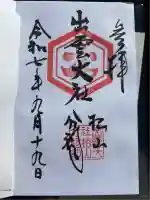 参拝
出雲大社
松山分祠
令和七年九月十九日